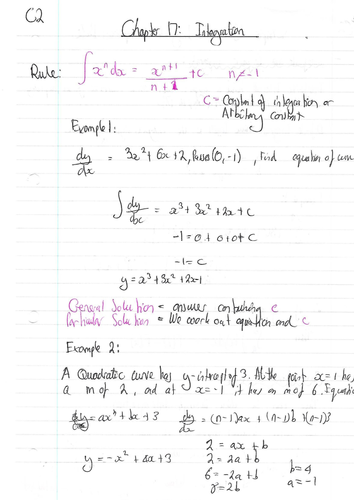 C2
Chapter 17: Integration
Rule: ∫xⁿdx = xⁿ⁺¹/n+1 + c n≠-1
C = Constant of integration or
Arbitrary constant
Example 1:
dy/dx = 3x²+6x+2, Passes(0,-1), Find equation of curve
∫dy/dx = x³+3x²+2x+c
-1=0+0+0+C
-1=C
y=x³+3x²+2x-1
General Solution = answer containing c
Particular Solution = We work out equation and c
Example 2:
A Quadratic curve has y-intercept of 3. At the point x=1 has
a m of 2, and at x=-1 it has an m of 6. Equation
y=ax²+bx+3 dy/dx = (n-1)ax + (n-1)b + (n-1)3
2 = ax+b
y=-x²+4x+3 2 = 2a+b
6=-2a+b b=4
8=2b a=-1